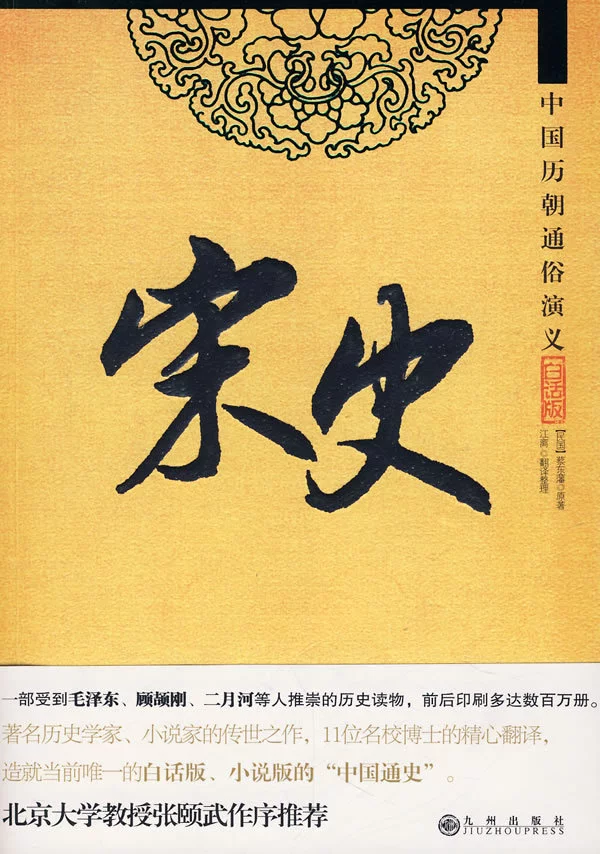 中国历朝通俗演义
白话版
【民国】蔡东藩◎原著
江漓◎翻译整理
宋史
一部受到毛泽东、顾颉刚、二月河等人推崇的历史读物，前后印刷多达数百万册。
著名历史学家、小说家的传世之作，11位名校博士的精心翻译，
造就当前唯一的白话版、小说版的“中国通史”。
北京大学教授张颐武作序推荐
九州出版社
JIUZHOUPRESS